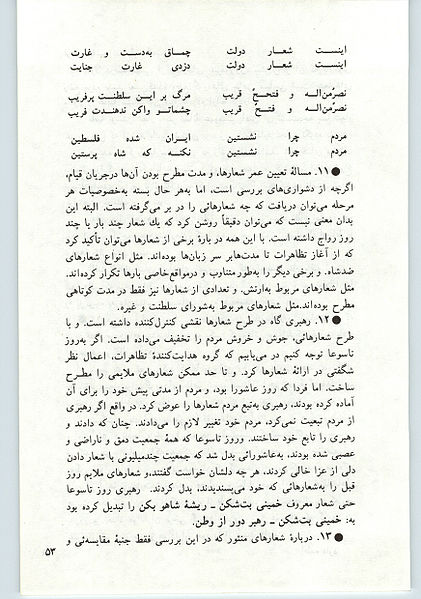 اینست شعار دولت چماق بهدست و غارت
اینست شعار دولت دزدی غارت جنایت
نصرمناله و فتحح قریب مرگ بر این سلطنت پرفریب
نصرمناله و فتح قریب چشماتو واکن ندهندت فریب
مردم چرا نشستین ایران شده فلسطین
مردم چرا نشستین نکنه که شاه پرستین
●۱۱. مسالهٔ تعیین عمر شعارها، و مدت مطرح بودن آنها درجریان قیام،
اگرچه از دشواریهای بررسی است، اما بههر حال بسته بهخصوصیات هر
مرحله میتوان دریافت که چه شعارهائی را در بر میگرفته است. البته این
بدان معنی نیست که میتوان دقیقاً روشن کرد که یك شعار چند بار یا چند
روز رواج داشته است. با این همه در بارهٔ برخی از شعارها میتوان تأکید کرد
که از آغاز تظاهرات تا مدتهابر سر زبانها بودهاند. مثل انواع شعارهای
ضدشاه. و برخی دیگر را بهطور متناوب و درمواقع خاصی بارها تکرار کردهاند.
مثل شعارهای مربوط بهارتش. و تعدادی از شعارها نیز فقط در مدت کوتاهی
مطرح بودهاند.مثل شعارهای مربوط بهشورای سلطنت و غیره.
●۱۲. رهبری گاه در طرح شعارها نقشی کنترلکننده داشته است. و با
طرح شعارهائی، جوش و خروش مردم را تخفیف میداده است. اگر بهروز
تاسوعا توجه کنیم در مییابیم که گروه هدایتکنندهٔ تظاهرات، اعمال نظر
شگفتی در ارائهٔ شعارها کرد. و تا حد ممکن شعارهای ملایمی را مطرح
ساخت. اما فردا که روز عاشورا بود، و مردم از مدتی پیش خود را برای آن
آماده کرده بودند، رهبری بهتبع مردم شعارها را عوض کرد. در واقع اگر رهبری
از مردم تبعیت نمیکرد، مردم خود تغییر لازم را میدادند. چنان که دادند و
رهبری را تابع خود ساختند. وروز تاسوعا که همهٔ جمعیت دمق و ناراضی و
عصبی شده بودند، بهعاشورائی بدل شد که جمعیت چندمیلیونی با شعار دادن
دلی از عزا خالی کردند، هر چه دلشان خواست گفتند،و شعارهای ملایم روز
قبل را بهشعارهائی که خود میپسندیدند، بدل کردند. رهبری روز تاسوعا
حتی شعار معروف خمینی بتشکن ــ ریشهٔ شاهو بکن را تبدیل کرده بود
به: خمینی بتشکن ــ رهبر دور از وطن.
●۱۳. دربارهٔ شعارهای منثور که در این بررسی فقط جنبهٔ مقایسهئی و
۵۳